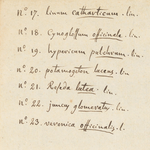 nº. 17. linum catharticum. lin.
nº. 18. Cynoglosum officinale. lin.
nº. 19. hypericum pulchrum. lin.
nº. 20. potamogeton lucens. lin.
nº. 21. Reseda lutea. lin.
nº. 22. juncus glomeratus. lin.
nº. 23. veronica officinalis. l.